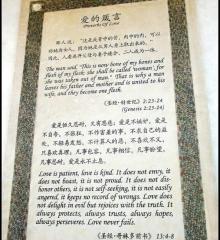 爱的箴言
Proverbs Of Love
那人说：“这是我骨中的骨，肉中的肉，可以
称她为女人，因为她是从男人身上取出来的。”
因此，人要离开父母与妻子结合，二人成为一体。
The man said, "This is now bone of my bones and
flesh of my flesh; she shall be called 'woman', for
she was taken out of man." That is why a man
leaves his father and mother and is united to his
wife, and they become one flesh.
《圣经·创世记》2:23-24
(Genesis 2:23-24)
爱是恒久忍耐，又有恩慈；爱是不嫉妒，爱是
不自夸，不张狂，不作害羞的事，不求自己的益
处，不轻易发怒，不计算人的恶，不喜欢不义，
只喜欢真理；凡事包容，凡事相信，凡事盼望，
凡事忍耐，爱是永不止息。
Love is patient, love is kind. It does not envy, it
does not boast, it is not proud. It does not dis
honor others, it is not self-seeking, it is not easily
angered, it keeps no record of wrongs. Love does
not delight in evil but rejoices with the truth. It
always protects, always trusts, always hopes,
always perseveres. Love never fails.
《圣经·哥林多前书》 13:4-8